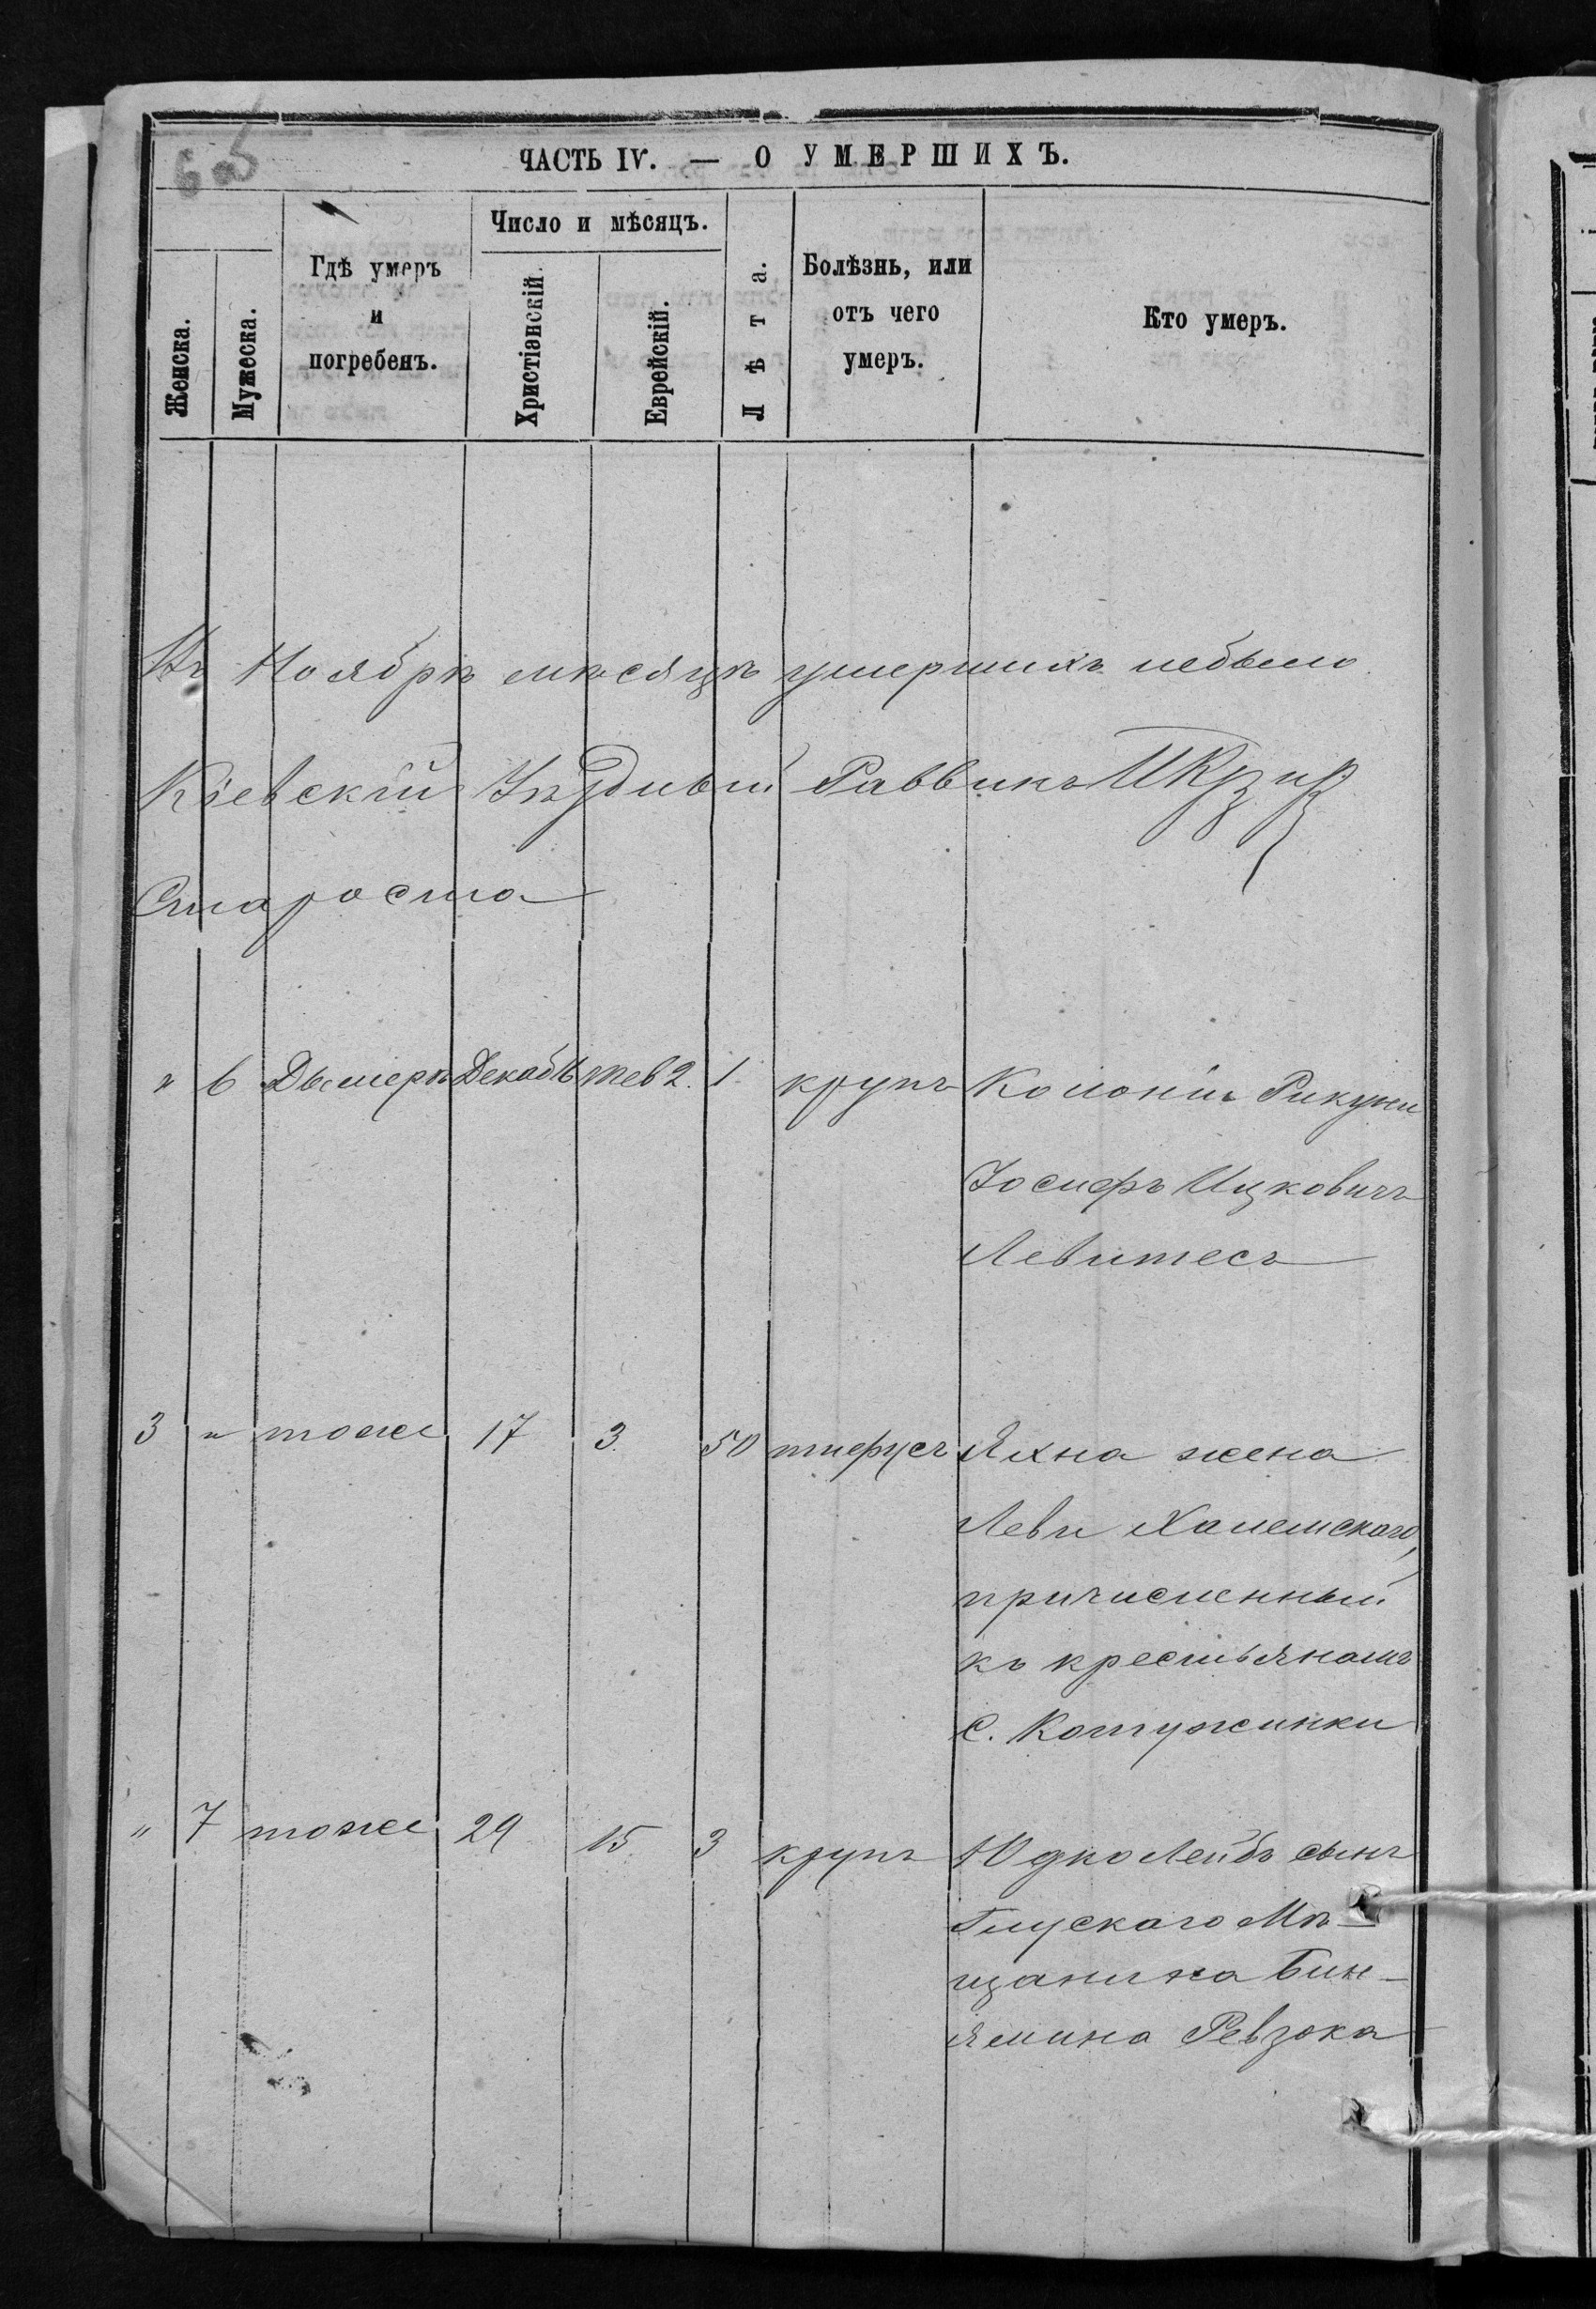 ЧАСТЬ IV. — О УМЕРШИХЪ.
Женска.
Мужеска.
Гдѣ умеръ
и
погребенъ.
Число и мѣсяцъ.
Христіанскій.
Еврейскій.
Лѣта.
Болѣзнь, или
отъ чего
умеръ.
Кто умеръ.
Въ Ноябрѣ мѣсяцѣ умершихъ небыло
Кіевскій Уѣздный Раввинъ
Староста
" 6 Дымеръ Декаб 16 тев 2. 1 крупъ Колоніи Рикуни
Іосифъ Ицковичъ
Левитесъ
3 " тоже 17 3. 50 тифусъ Яхна жена
Леви Халемскаго,
причисленный
къ крестьянамъ
С. Катюжинки
" 7 тоже 29 15. 3 крупъ Юдко Лейбъ сынъ
Глускаго Мѣ-
щанина Бин-
ямина Ревзока